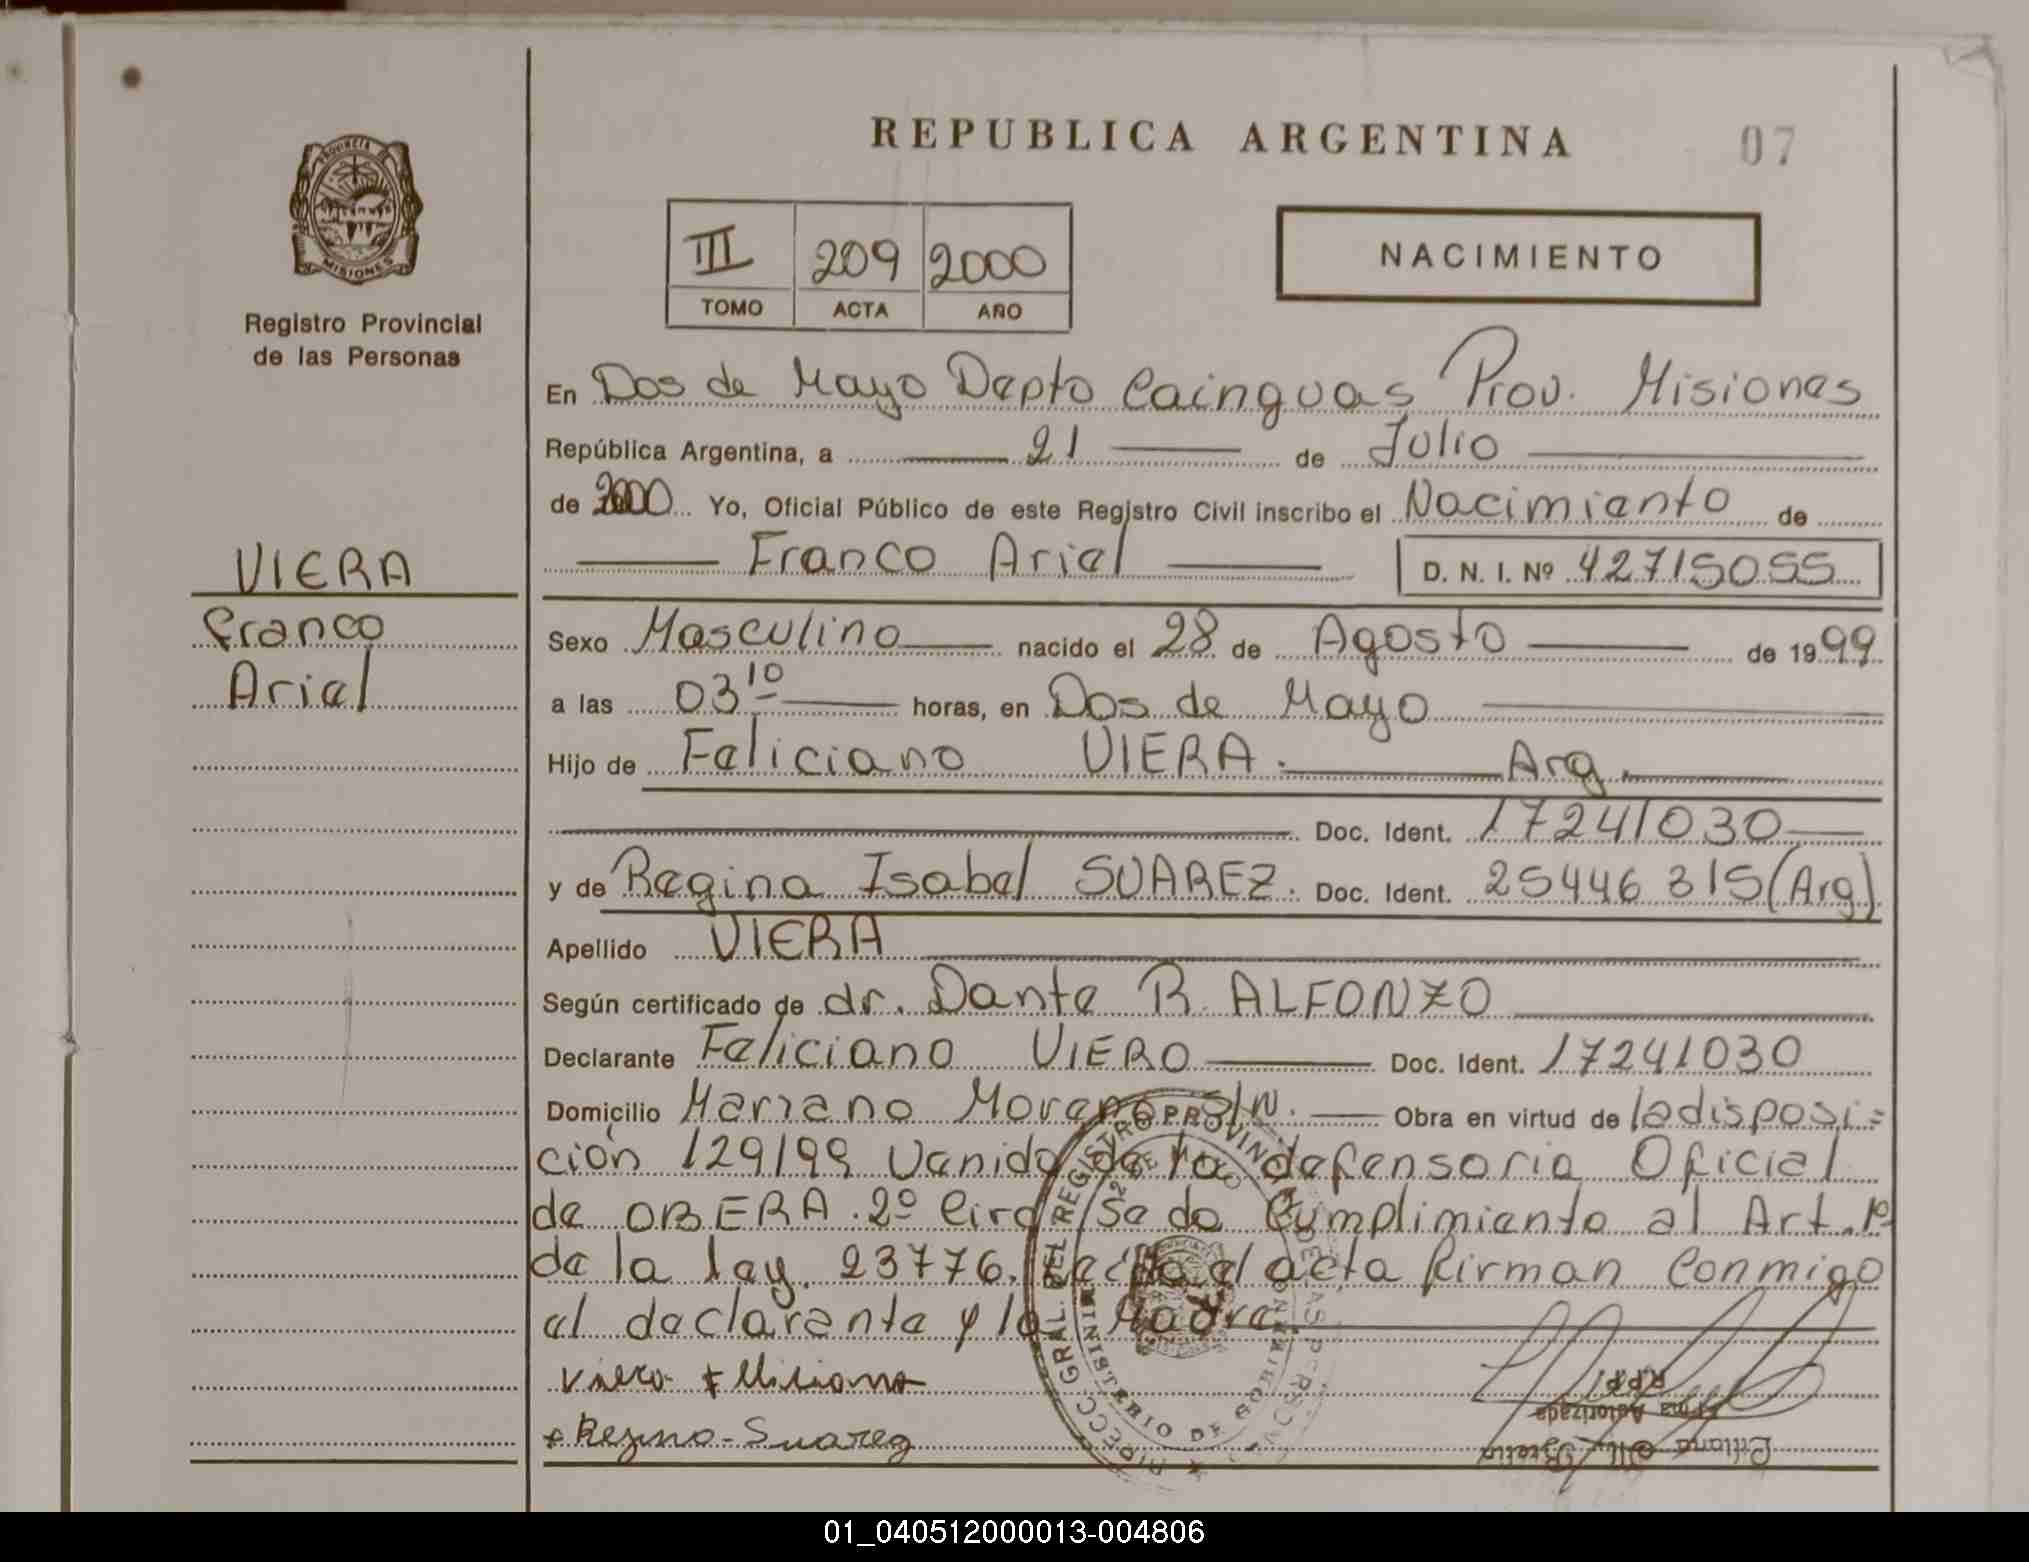 REPUBLICA ARGENTINA
07
PROVINCIA DE
MISIONES
Registro Provincial
de las Personas
III 209 2000
TOMO ACTA AÑO
NACIMIENTO
En Dos de Mayo Depto Cainguas Prov. Misiones
República Argentina, a 21 de Julio
de 2000 Yo, Oficial Público de este Registro Civil inscribo el Nacimiento de
Franco Ariel D. N. I. Nº 42715055
VIERA
Franco
Ariel
Sexo Masculino nacido el 28 de Agosto de 1999
a las 03 10 horas, en Dos de Mayo
Hijo de Feliciano VIERA. Arg.
Doc. Ident. 17241030
y de Regina Isabel SUAREZ. Doc. Ident. 25446315 (Arg)
Apellido VIERA
Según certificado de dr. Dante R. ALFONZO
Declarante Feliciano VIERO Doc. Ident. 17241030
Domicilio Mariano Moreno S/N. Obra en virtud de la disposi=
ción 129/99 Venida de la defensoria Oficial
de OBERA. 2º Circ. Se da Cumplimiento al Art. 1º
de la ley. 23776. Leída el acta firman Conmigo
el declarante y la Madre.
Viero
Suarez
DIRECC GRAL. DEL REGISTRO PROVINCIAL DE LAS PERSONAS
2 DE MAYO
MINISTERIO DE GOBIERNO
R.P.P.
Firma Autorizada
01_040512000013-004806